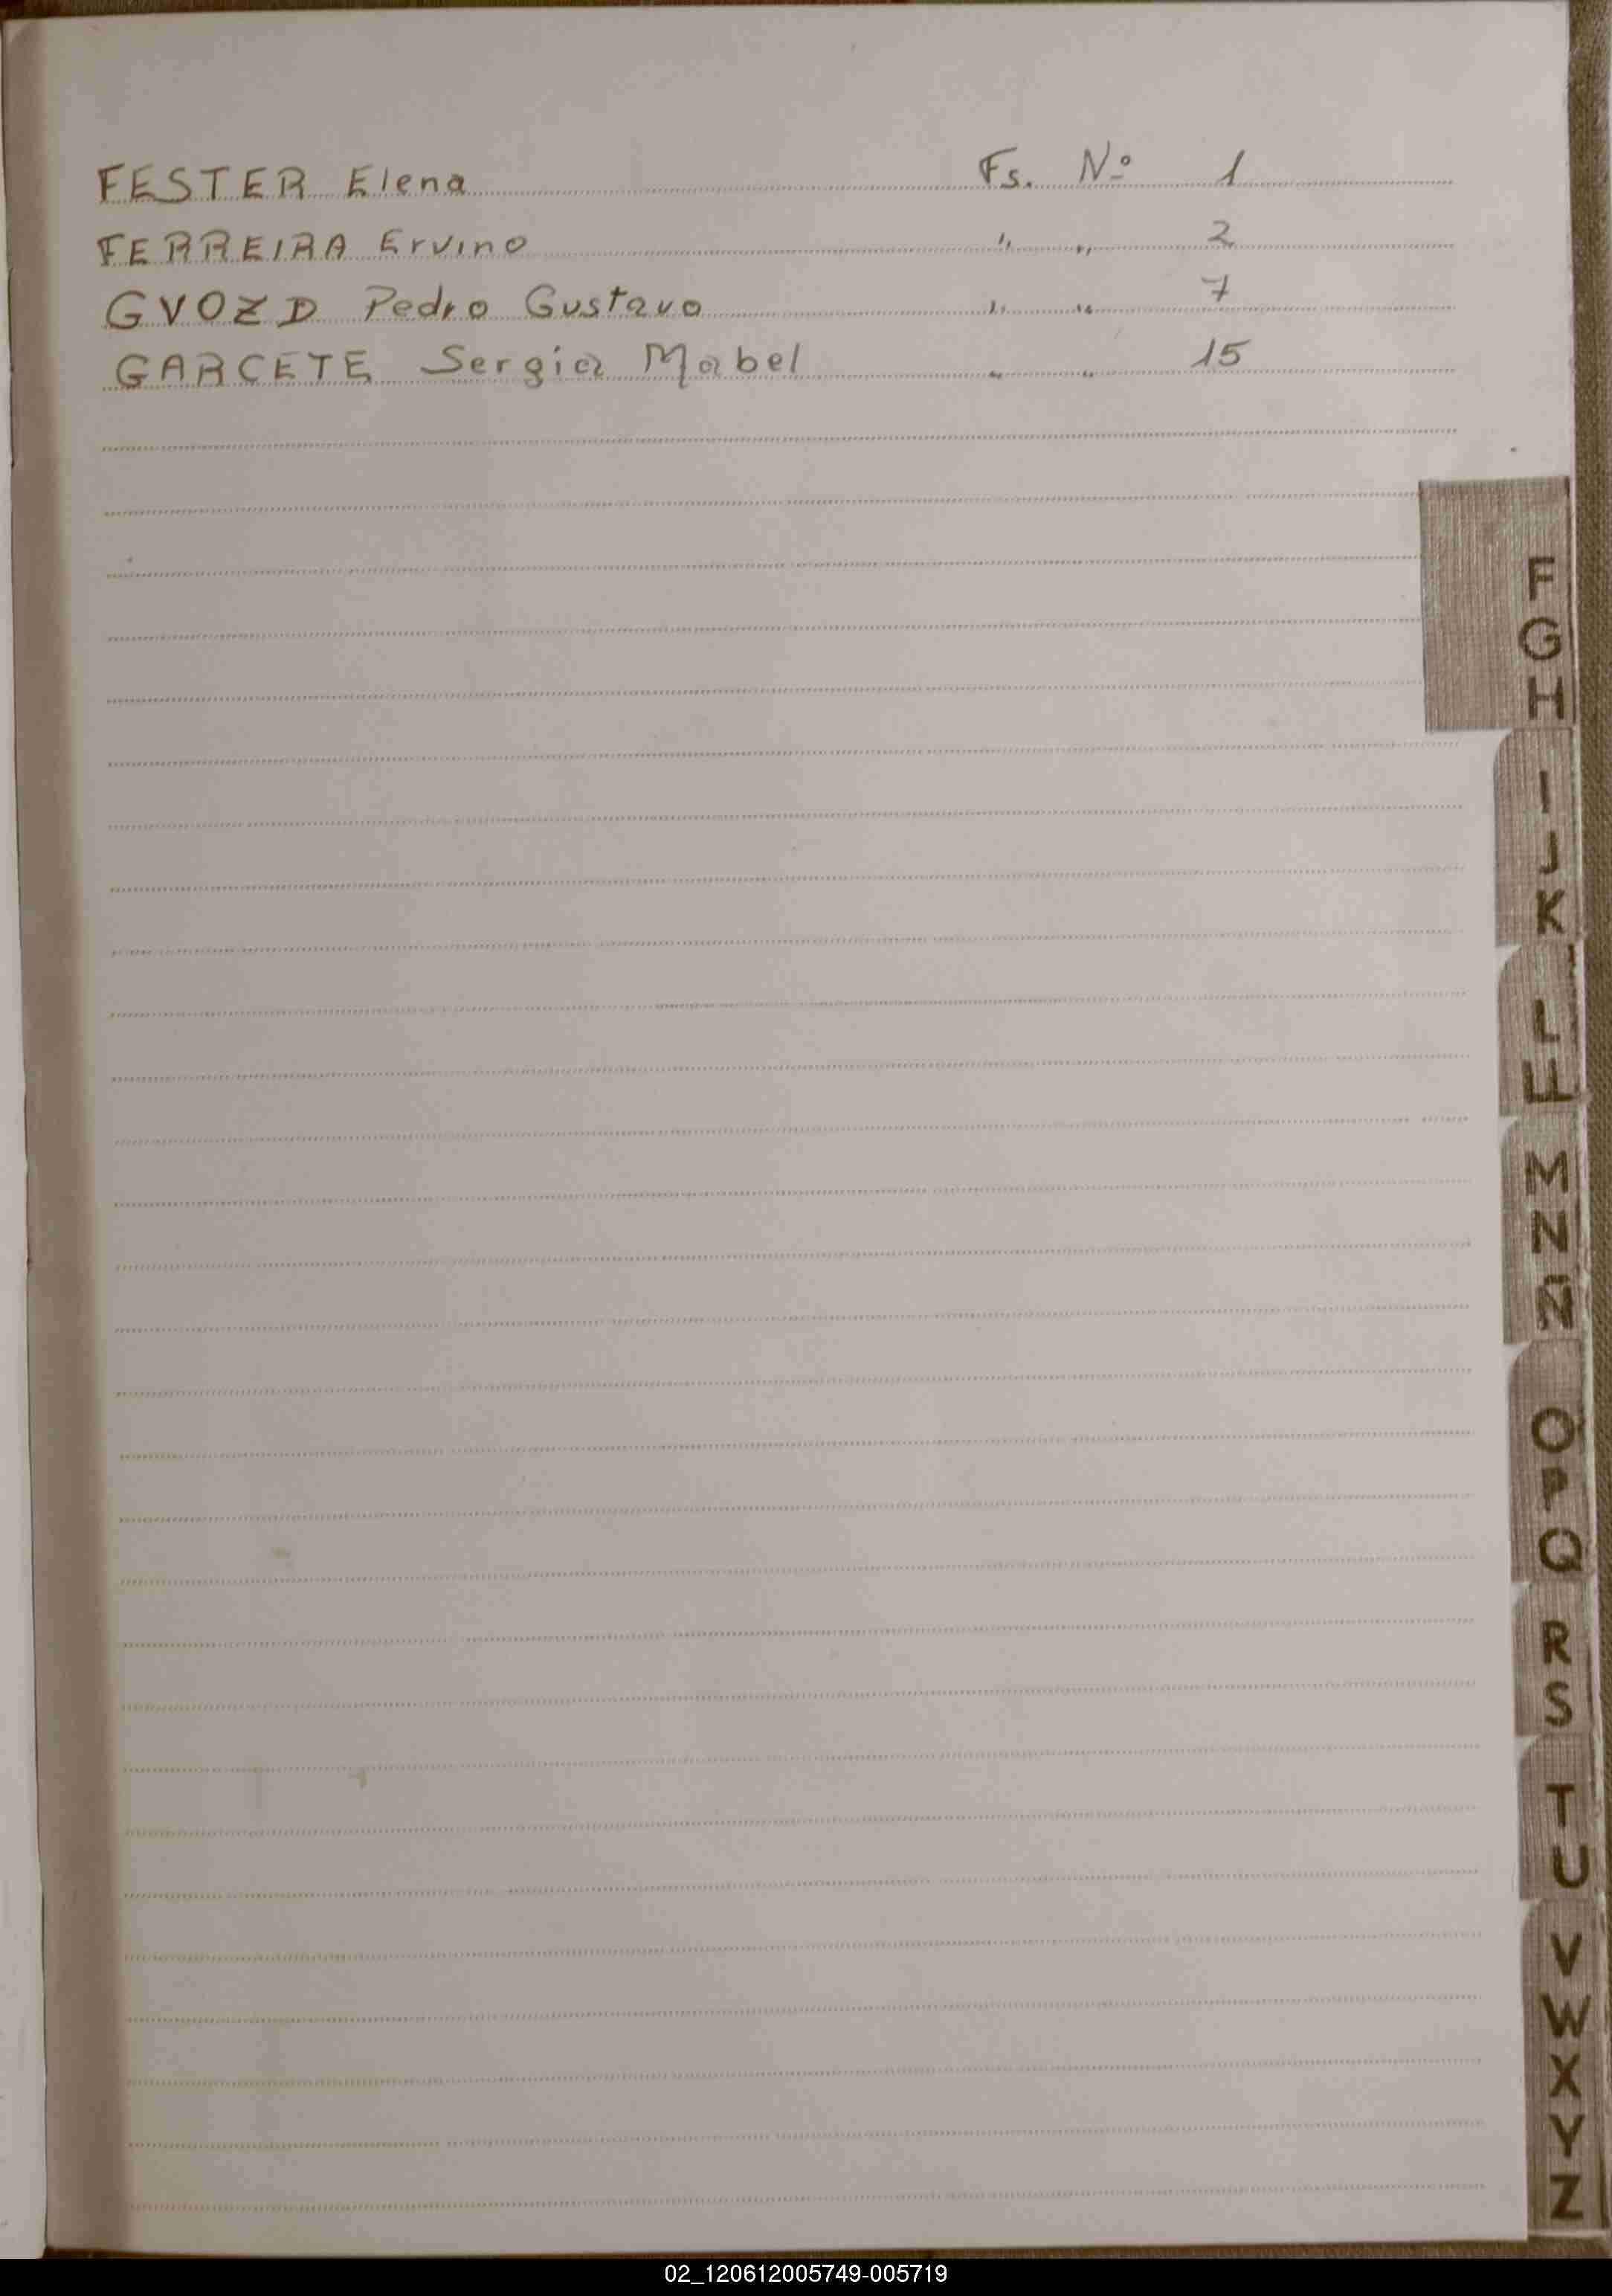 FESTER Elena Fs. Nº 1
FERREIRA Ervino " " 2
GVOZD Pedro Gustavo " " 7
GARCETE Sergia Mabel " " 15
F
G
H
I
J
K
L
LL
M
N
Ñ
O
P
Q
R
S
T
U
V
W
X
Y
Z
02_120612005749-005719